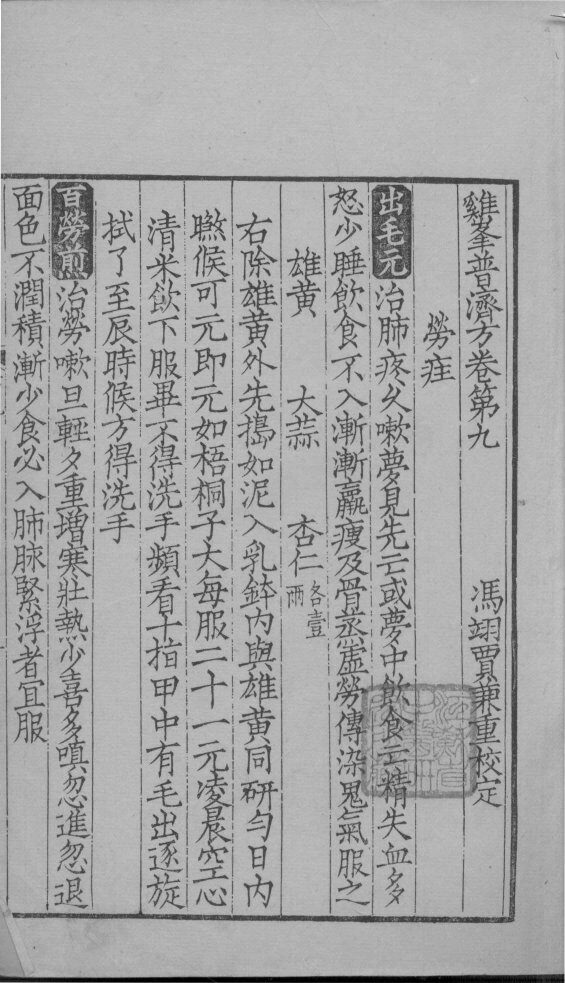 雞峯普濟方卷第九　馮翊賈兼重校定
勞疰
出毛元　治肺疼久嗽夢見先亡或夢中飲食亡精失血多
怒少睡飲食不入漸漸羸瘦及骨蒸虛勞傳染鬼氣服之
雄黃　大蒜　杏仁各壹兩
右除雄黃外先搗如泥入乳鉢內與雄黃同研勻日內
㬠候可元即元如梧桐子大每服二十一元凌晨空心
清米飲下服畢不得洗手頻看十指甲中有毛出逐旋
拭了至辰時候方得洗手
百勞煎　治勞嗽旦輕夕重增寒壯熱少喜多嗔忽進忽退
面色不潤積漸少食必入肺脉緊浮者宜服